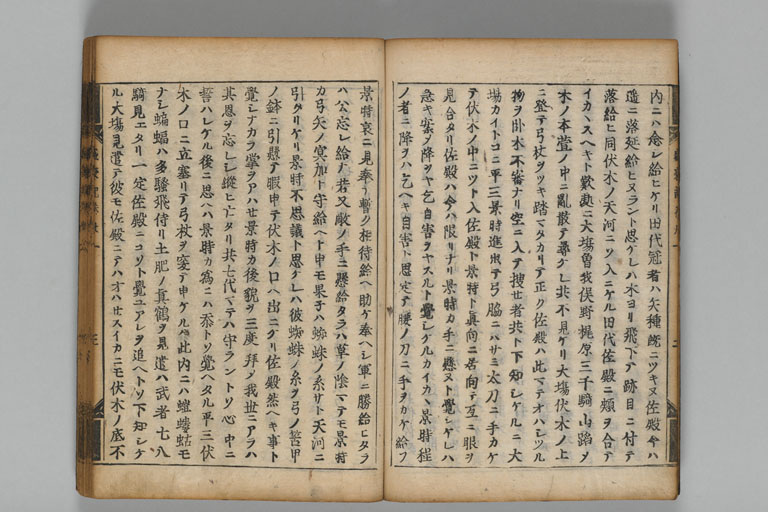 内ニハ念シ給ヒケリ田代冠者ハ矢種既ニツキヌ佐殿今ハ
遥ニ落延給ヒヌラント思ケレハ木ヨリ飛下テ跡目ニ付テ
落給ヒ同伏木ノ天河ニソ入ニケル田代佐殿ニ頬ヲ合テ
イカヽスヘキト歎処ニ大場曽我俣野梶原三千騎山踏メ
木ノ本萱ノ中ニ乱散テ尋ケレ共不見ケリ大場伏木ノ上
ニ登テ弓杖ヲツキ踏マタカリテ正ク佐殿ハ此マテオハシツル
物ヲ臥木不審ナリ空ニ入テ捜セ者共ト下知シケルニ大
場カイトコニ平三景時進出テ弓脇ニハサミ太刀ニ手カケ
テ伏木ノ中ニツト入佐殿ト景時ト真向ニ居向テ互ニ眼ヲ
見合タリ佐殿ハ今ハ限リナリ景時カ手ニ懸ヌト覚シケレハ
急キ案ヲ降ヲヤ乞自害ヲヤスルト覚シケルカイカヽ景時程
ノ者ニ降ヲハ乞ヘキ自害ト思定テ腰ノ刀ニ手ヲカケ給フ
景時哀ニ見奉リ暫ク相待給ヘ助ケ奉ヘシ軍ニ勝給ヒタラ
ハ公忘レ給ナ若又敵ノ手ニ懸給タラハ草ノ陰マテモ景時
カ弓矢ノ冥加ト守給ヘト申モ果子ハ蜘蛛ノ糸サト天河ニ
引タリケリ景時不思議ト思ケレハ彼蜘蛛ノ糸ヲ弓ノ筈甲
ノ鉢ニ引懸テ暇申テ伏木ノ口ヘ出ニケリ佐殿然ヘキ事ト
覚シナカラ掌ヲアハセ景時カ後貌ヲ三度拝ノ我世ニアラハ
其恩ヲ忘レシ縦ヒ亡タリ共七代マテハ守ラントソ心中ニ
誓ハレケル後ニ思ヘハ景時カ為ニハ忝トソ覚ヘタル平三伏
木ノ口ニ立塞リテ弓杖ヲ突テ申ケルハ此内ニハ蟻螻蛄モ
ナシ蝙蝠ハ多騒飛侍リ土肥ノ真鶴ヲ見遣ハ武者七八
騎見エタリ一定佐殿ニコソト覚ユアレヲ追ヘトソ下知シケ
ル大場見遣テ彼モ佐殿ニテハオハセスイカニモ伏木ノ底不